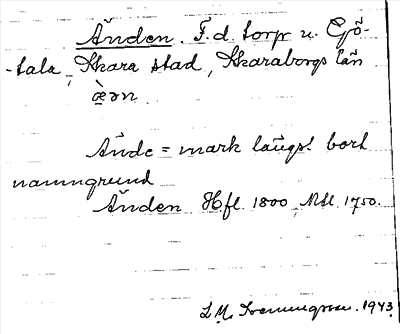 Änden. F.d. torp u. Gö-
-tala, Skara stad, Skaraborgs län
æ̀ǝn
Ände = mark längst bort
namngrund
Änden Hfl. 1800, Mtl 1750.
L. M. 1943.